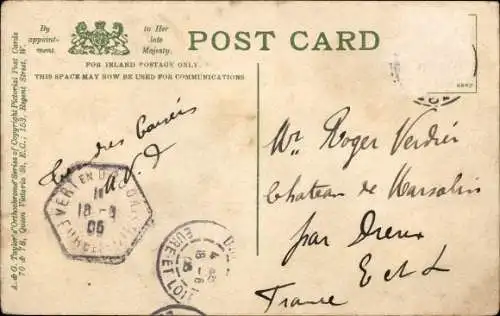 By
appoint-
ment.
to Her
late
Majesty.
POST CARD
FOR INLAND POSTAGE ONLY.
THIS SPACE MAY NOW BE USED FOR COMMUNICATIONS
A. & G. Taylor's Orthochrome Series of Copyright Pictorial Post Cards
70 & 78, Queen Victoria St, E.C.; 153, Regent Street, W.
des baisers
Mr Roger Verdier
Chateau de Marsalin
par Dreux
E et L
France
VERT EN D
18-6
05
EURE-ET-LOIR
4
18-6
05
EURE-ET-LOIR